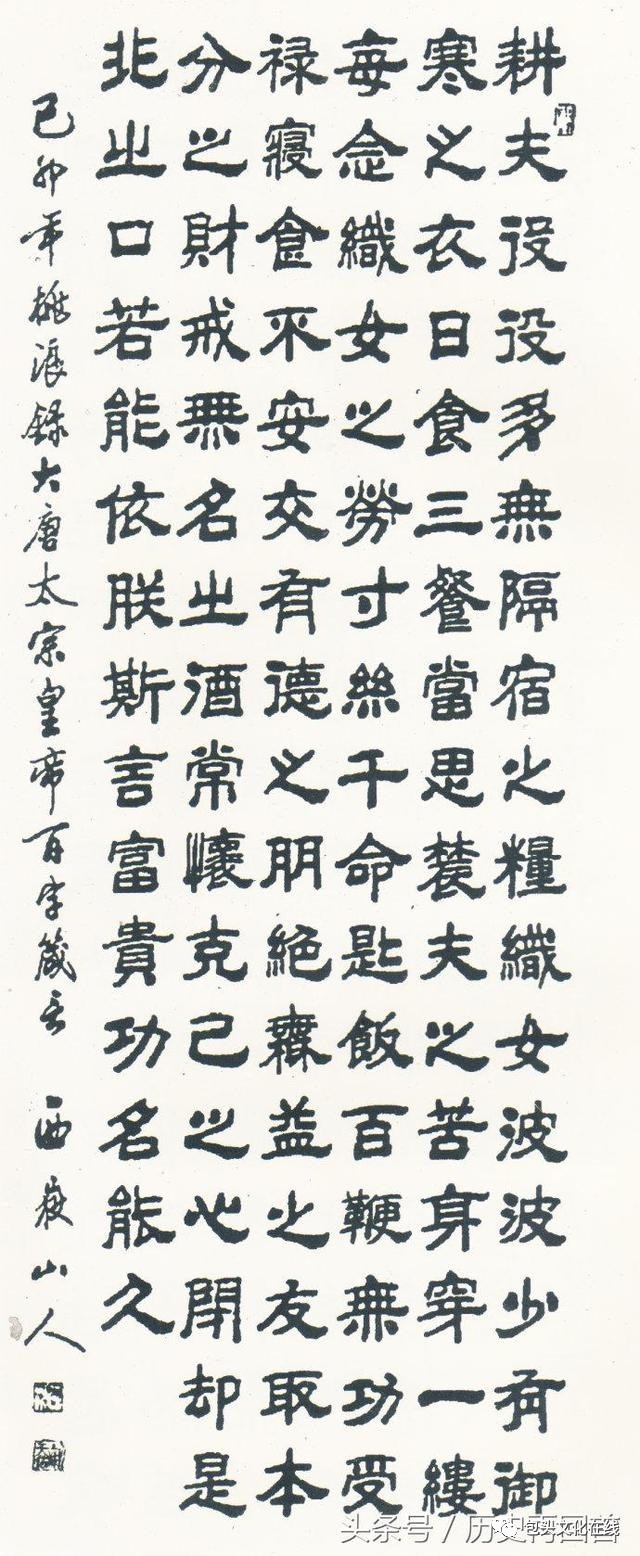 耕夫役役多無隔宿之糧織女波波少有御
寒之衣日食三餐當思農夫之苦身穿一縷
每念織女之勞寸絲千命匙飯百鞭無功受
禄寢食不安交有德之朋絶無益之友取本
分之財戒無名之酒常懷克己之心閉却是
非之口若能依朕斯言富貴功名能久
己卯年桃浪錄大唐太宗皇帝百字箴言 西嶽山人
头条号 / 历史
包头文化在线